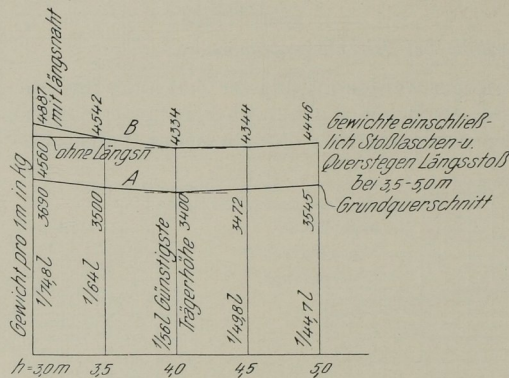 Gewicht pro 1m in kg
4887
mit Längsnaht
4560
ohne Längsn
3690
1/74,8 l
4542
3500
1/64 l
B
A
4334
3400
1/56 l Günstigste
Trägerhöhe
4344
3472
1/49,8 l
4446
3545
1/44,7 l
Gewichte einschließ-
lich Stoßlaschen-u.
Querstegen Längsstoß
bei 3,5-5,0 m
Grundquerschnitt
h=3,0m 3,5 4,0 4,5 5,0